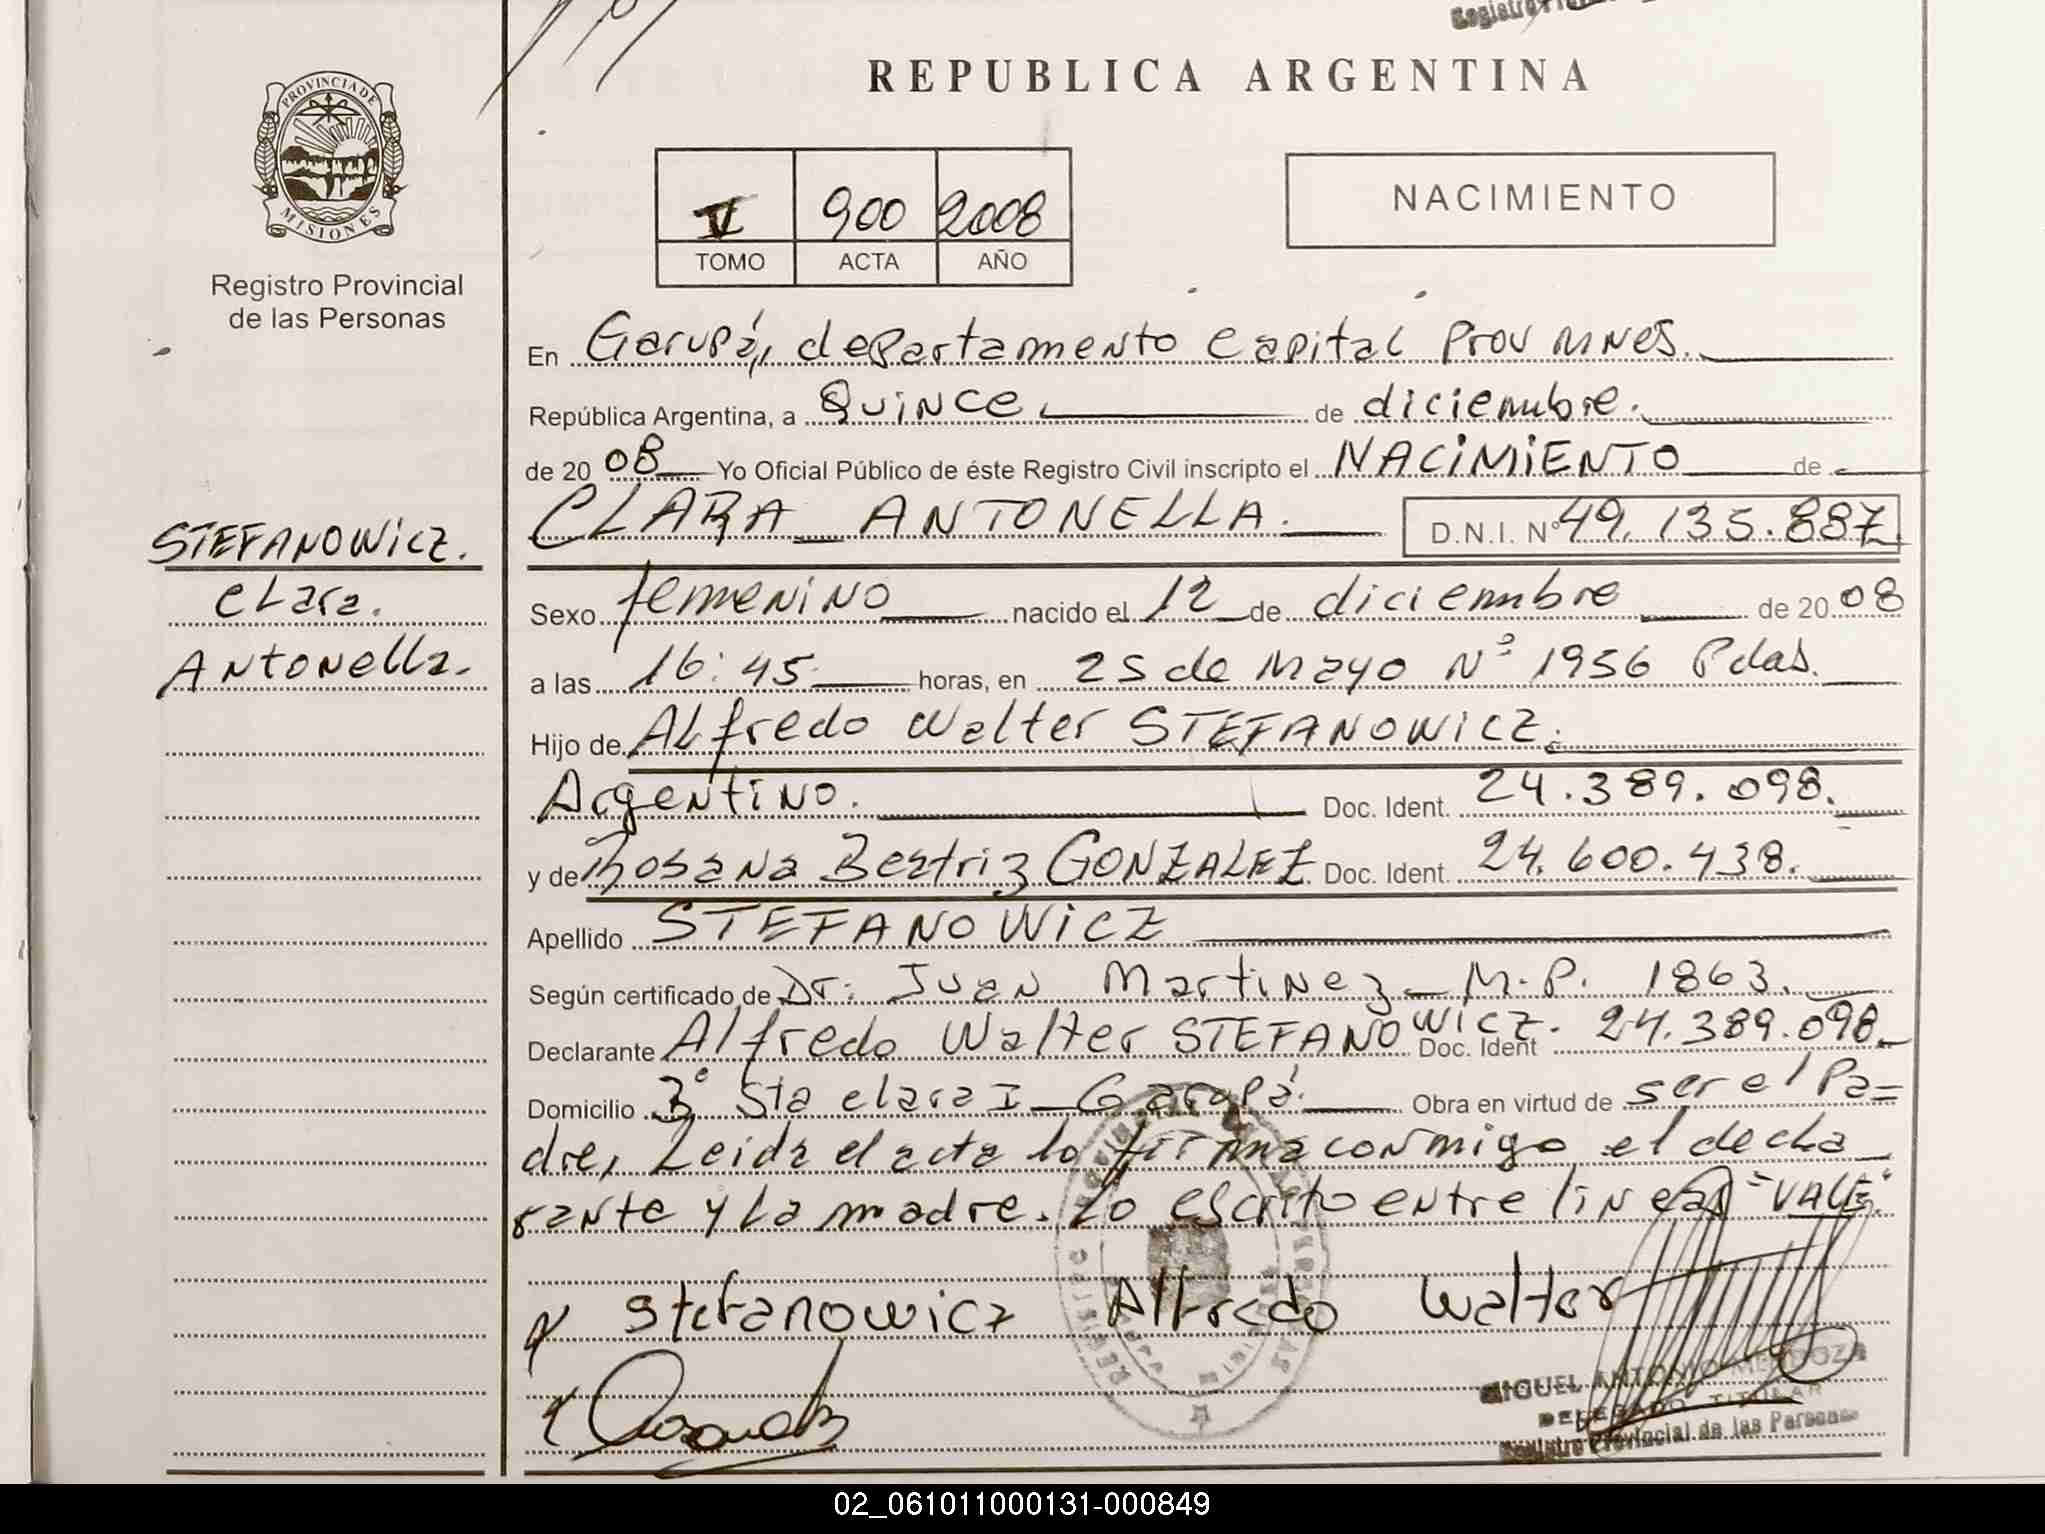 Registro Pro
REPUBLICA ARGENTINA
PROVINCIA DE
MISIONES
Registro Provincial
de las Personas
V 900 2008
TOMO ACTA AÑO
NACIMIENTO
En Garupá, departamento Capital Prov Mnes.
República Argentina, a Quince de diciembre.
de 20 08 Yo Oficial Público de éste Registro Civil inscripto el NACIMIENTO de
CLARA ANTONELLA. D.N.I. Nº 49.135.887
STEFANOWICZ.
Clara.
Antonella.
Sexo femenino nacido el 12 de diciembre de 20 08
a las 16:45 horas, en 25 de Mayo Nº 1956 Pdas.
Hijo de Alfredo Walter STEFANOWICZ.
Argentino. Doc. Ident. 24.389.098.
y de Rosana Beatriz GONZALEZ Doc. Ident. 24.600.438.
Apellido STEFANOWICZ
Según certificado de Dr. Juan Martinez - M.P. 1863.
Declarante Alfredo Walter STEFANOWICZ. Doc. Ident 24.389.098.
Domicilio Bº Sta Clara I - Garupá. Obra en virtud de ser el Pa=
dre, Leida el acta lo firma conmigo el decla
rante y la madre. Lo escrito entre lineas "VALE."
Stefanowicz Alfredo Walter
MIGUEL ANTONIO MENDOZA
DELEGADO TITULAR
Registro Provincial de las Personas
02_061011000131-000849